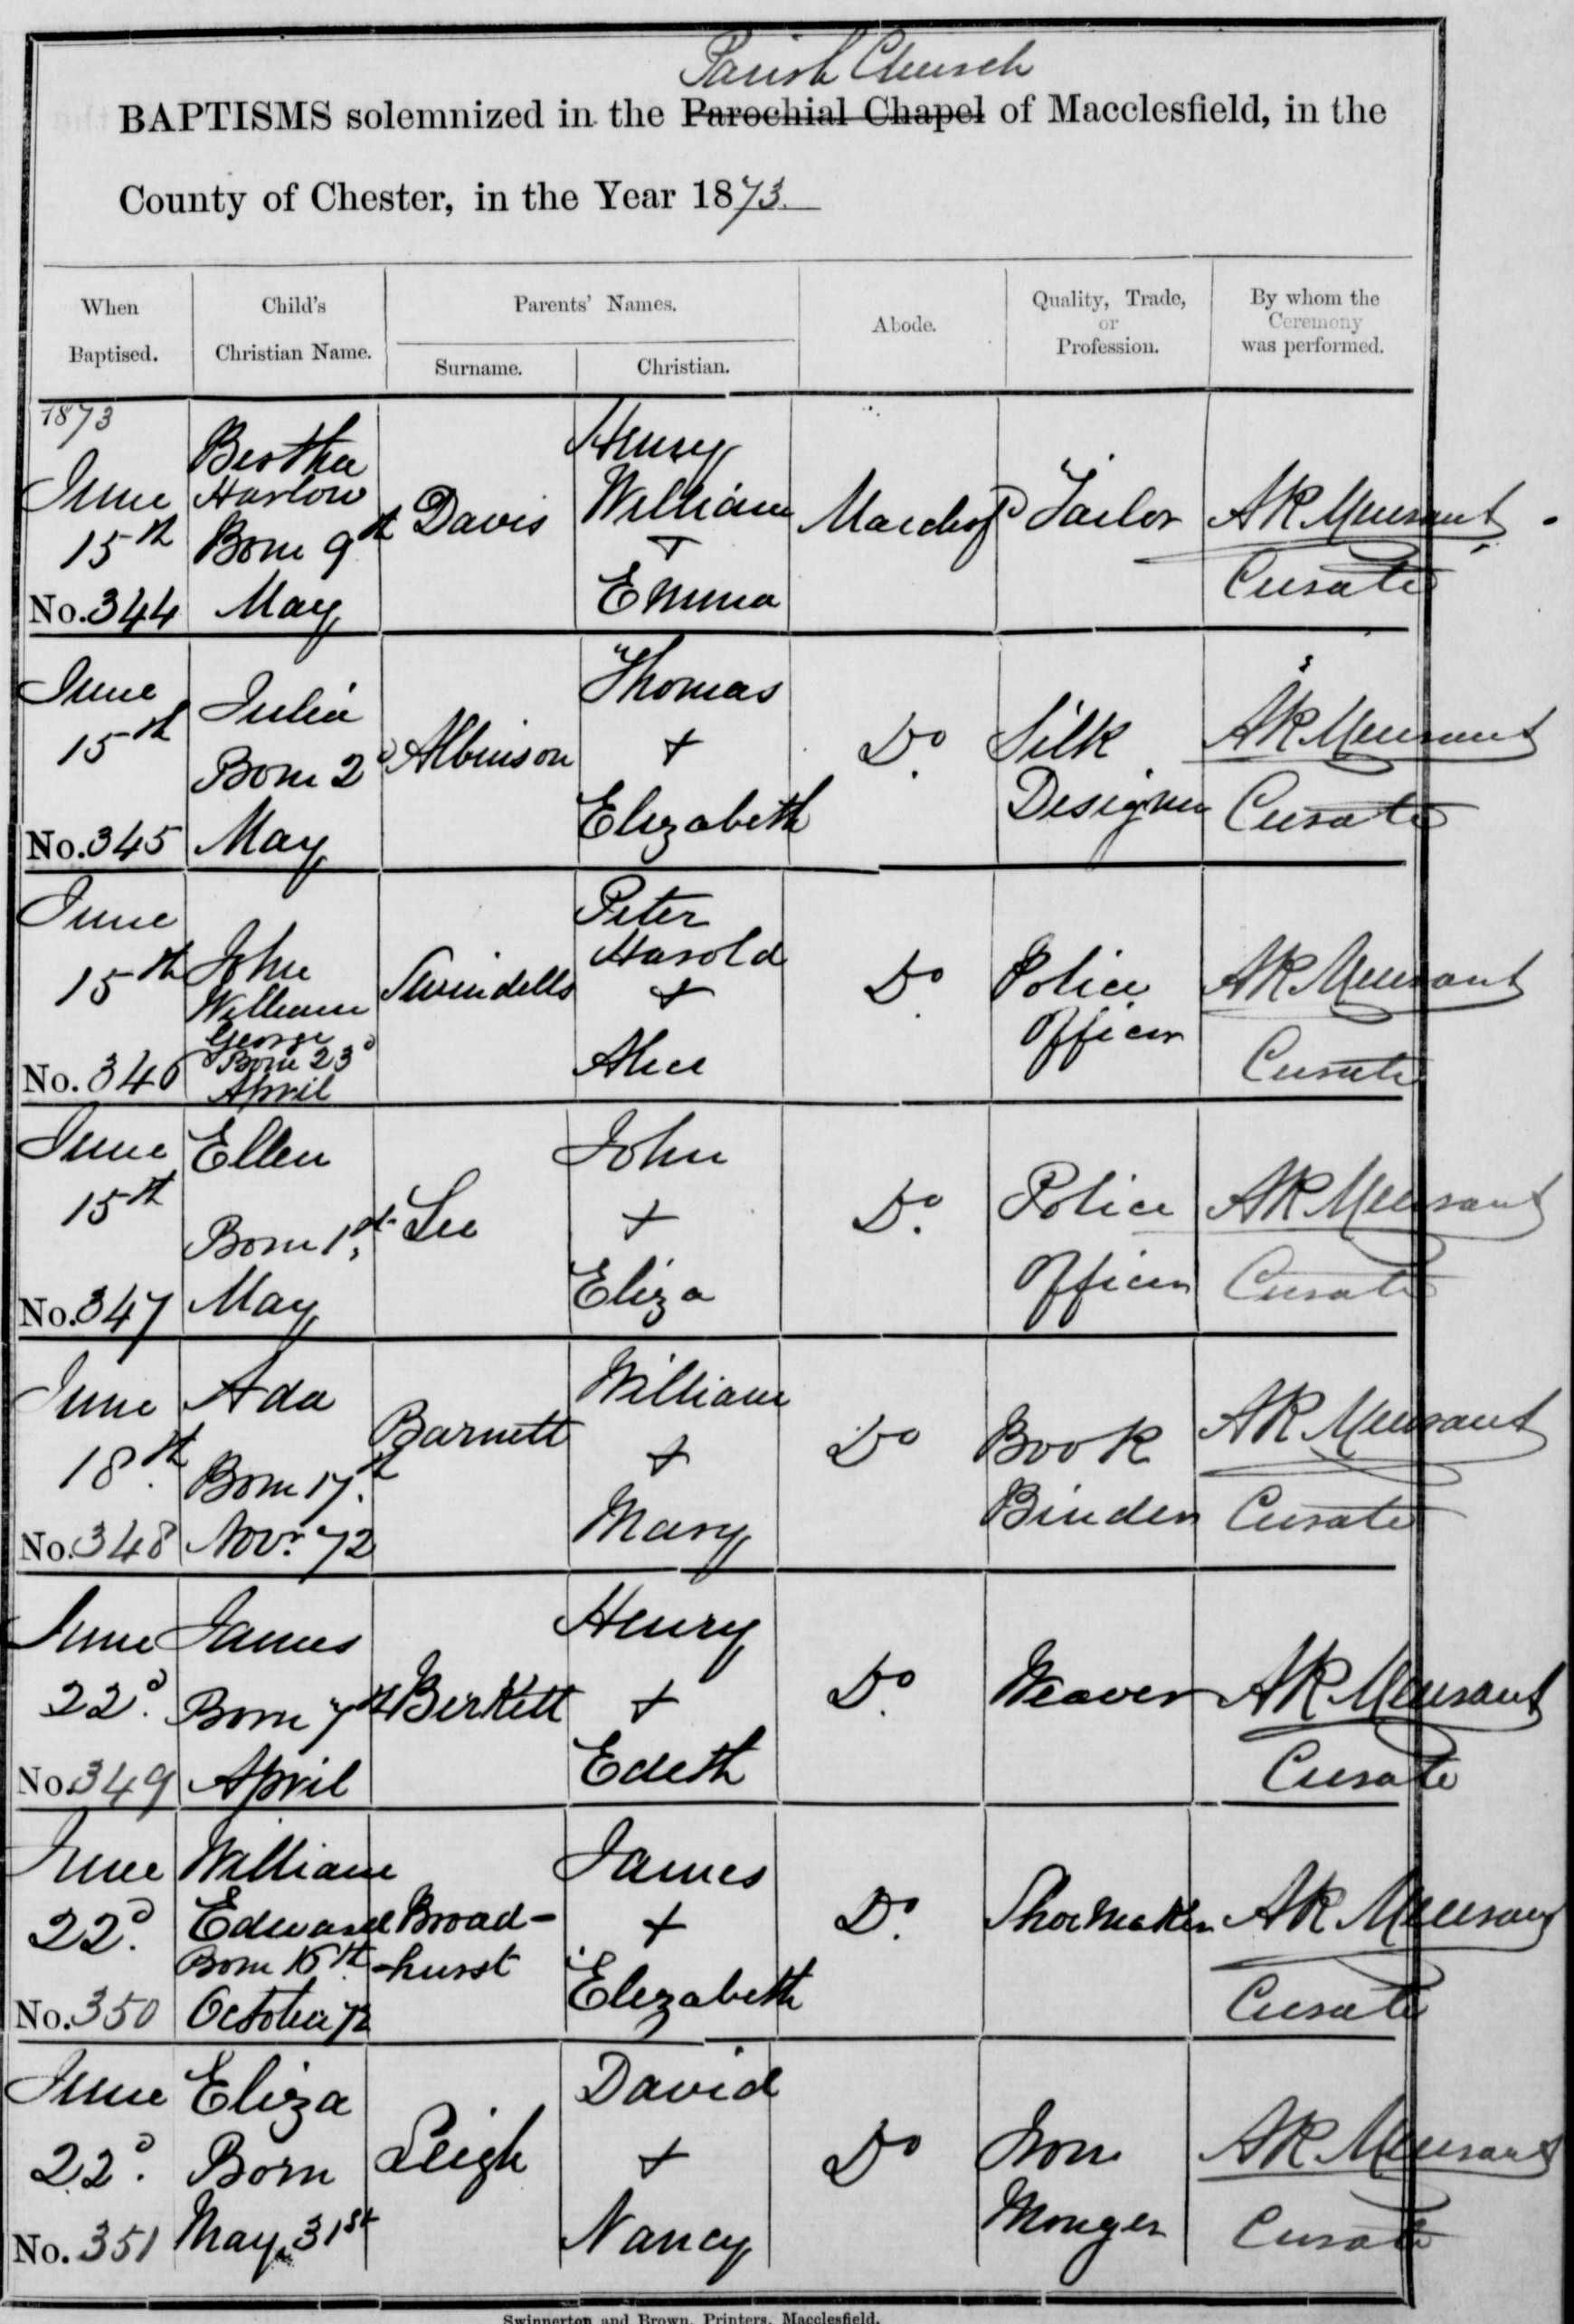 Parish Church
BAPTISMS solemnized in the Parochial Chapel of Macclesfield, in the
County of Chester, in the Year 1873.
When Baptised.
Child's Christian Name.
Parents' Names.
Surname.
Christian.
Abode.
Quality, Trade, or Profession.
By whom the Ceremony was performed.
1873
June
15th
No. 344
Bertha
Harlow
Born 9th
May
Davis
Henry
William
+
Emma
Tailor
Curate
June
15th
No. 345
Julia
Born 2d
May
Albinson
Thomas
+
Elizabeth
Do
Silk
Designer
Curate
June
15th
No. 346
John
William
George
Born 23d
April
Swindells
Peter
Harold
+
Alice
Do
Police
Officer
Curate
June
15th
No. 347
Ellen
Born 1st
May
Lee
John
+
Eliza
Do
Police
Officer
Curate
June
18th
No. 348
Ada
Born 17th
Novr 72
Barnett
William
+
Mary
Do
Book
Binder
Curate
June
22d
No. 349
James
Born 7th
April
Birkett
Henry
+
Edith
Do
Weaver
Curate
June
22d
No. 350
William
Edward
Born 16th
October 72
Broad-
-hurst
James
+
Elizabeth
Do
Shoemaker
Curate
June
22d
No. 351
Eliza
Born
May 31st
Leigh
David
+
Nancy
Do
Iron
Monger
Curate
Swinnerton and Brown, Printers, Macclesfield.